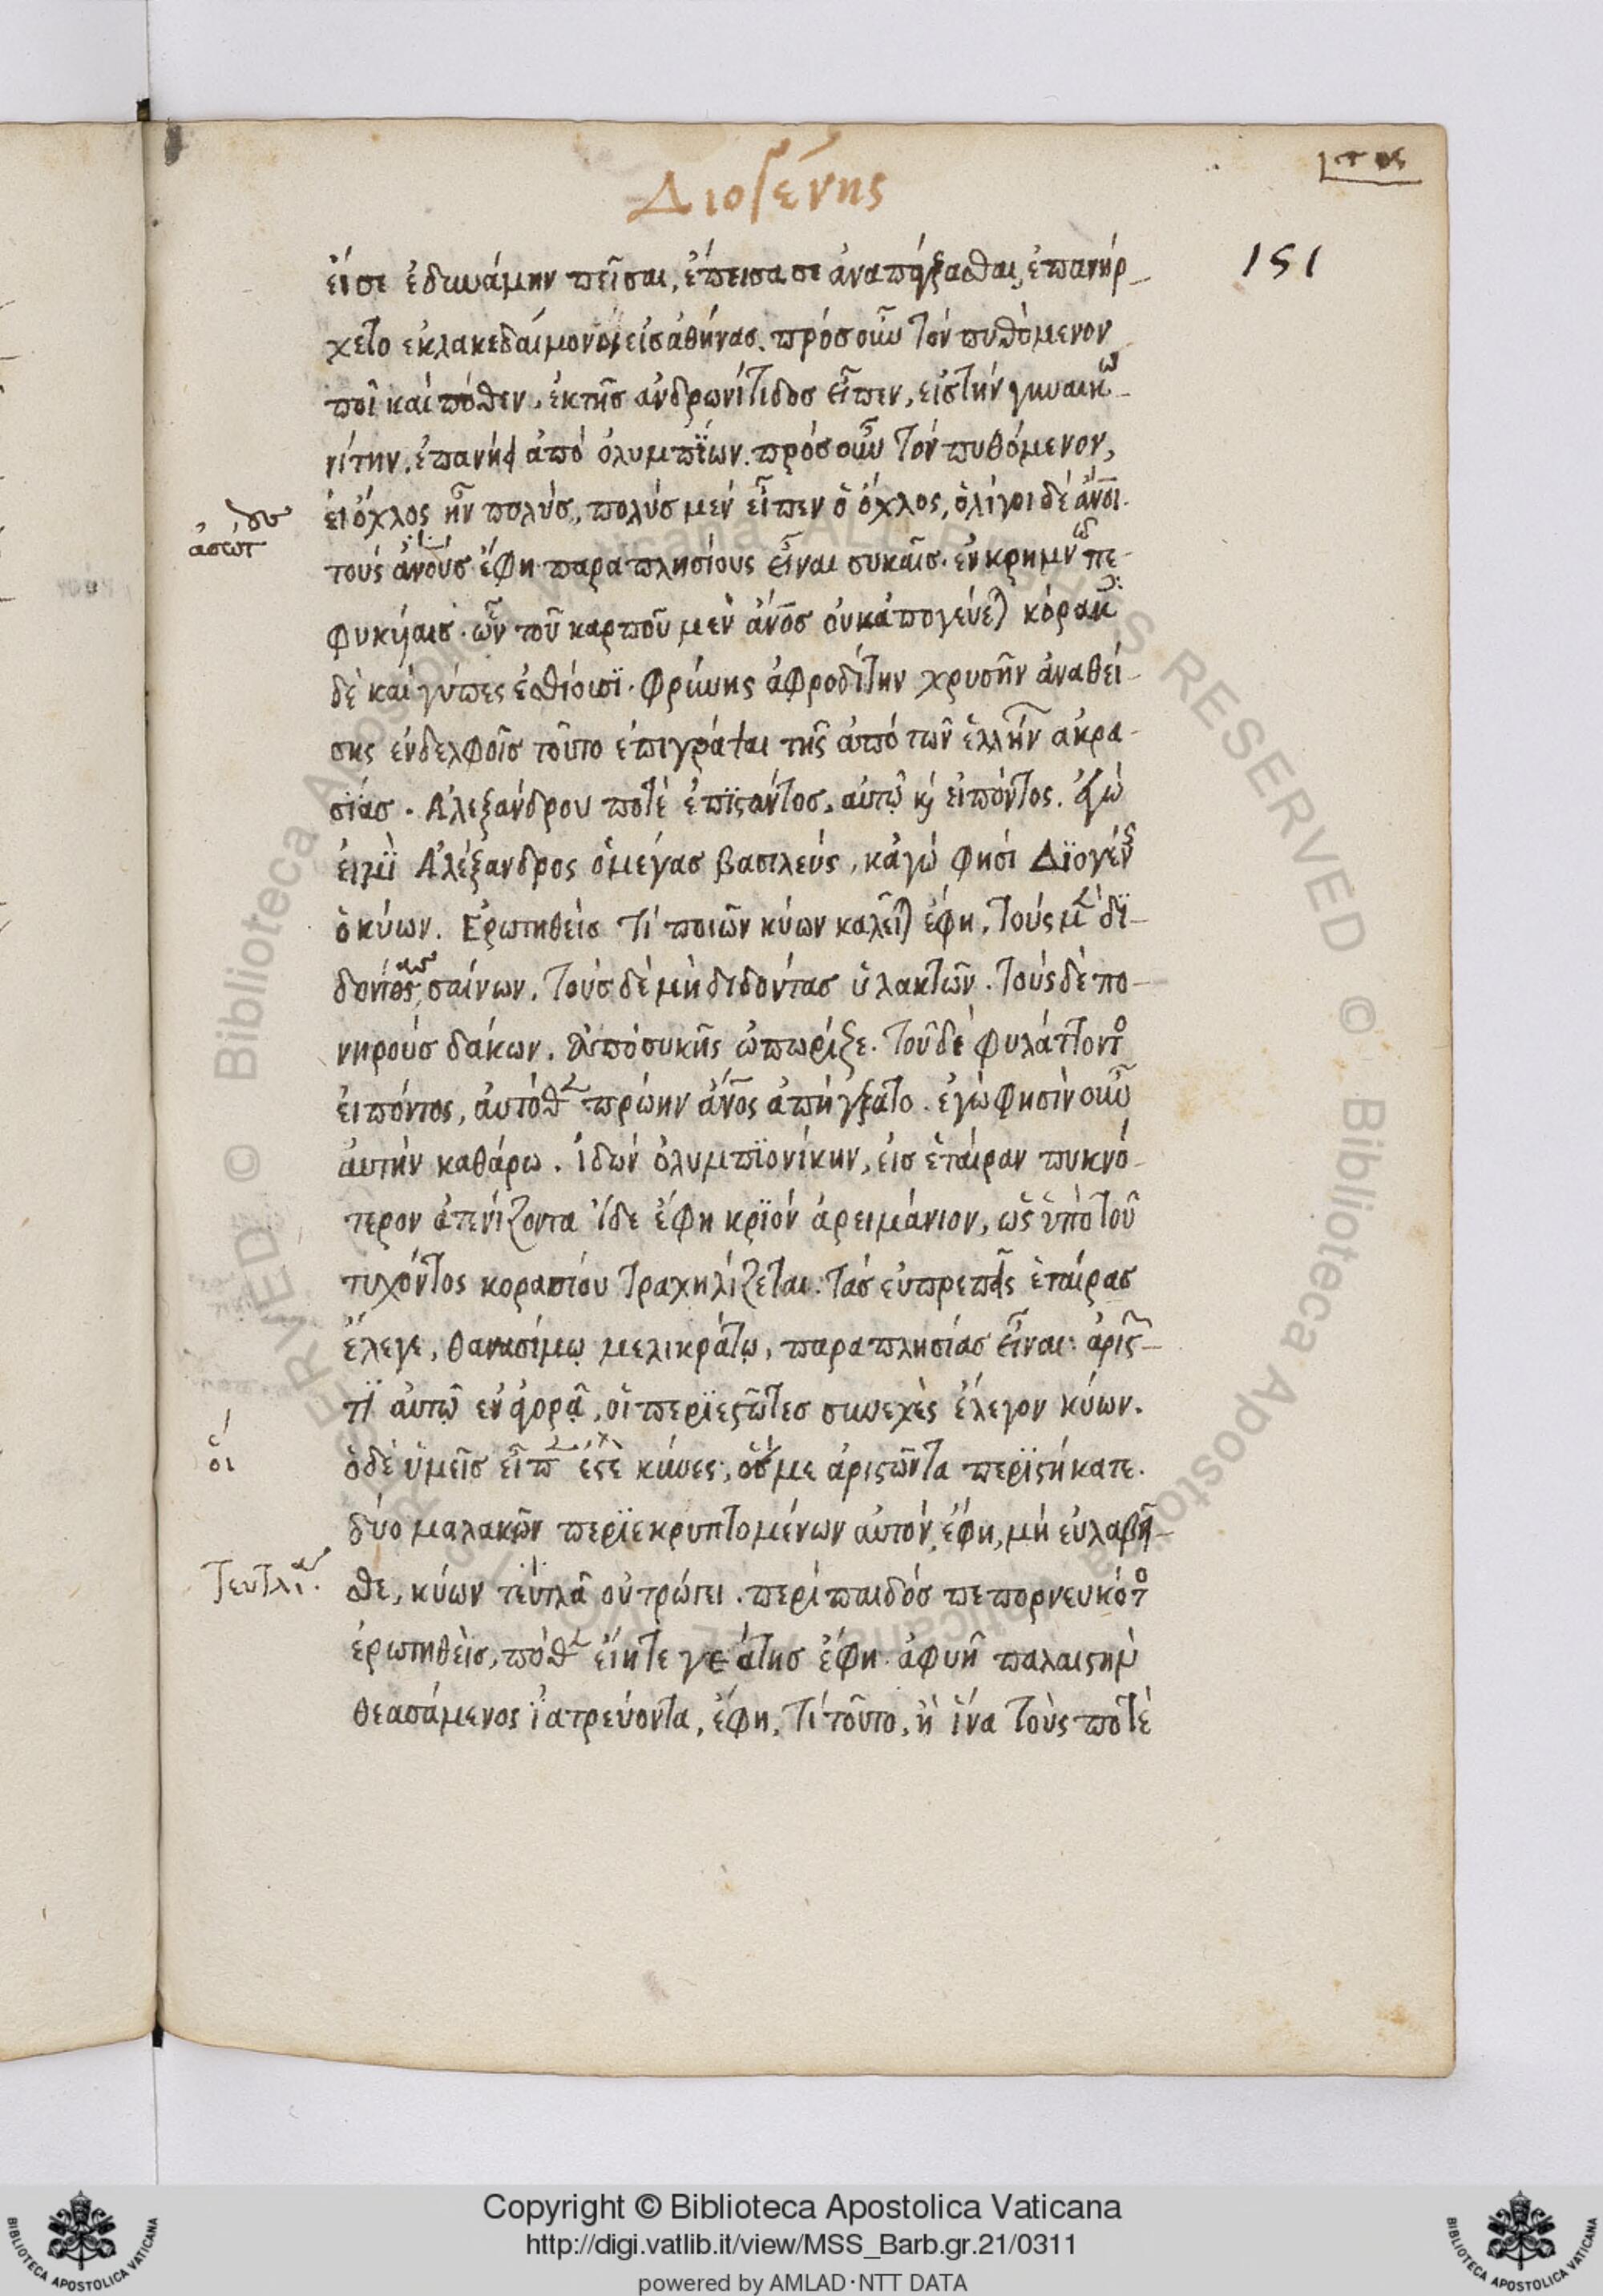 Διογένης
151
εἴ σε ἐδυνάμην πεῖσαι, ἔπεισα σε ἀναπήγξασθαι, ἐπανήρ-
χετο ἐκ λακεδαίμονος εἰς ἀθήνας. πρὸς οὖν τὸν πυθόμενον
ποῖ καὶ πόθεν, ἐκ τῆς ἀνδρωνίτιδος εἶπεν, εἰς τὴν γυναικω-
νίτην. ἐπανήει ἀπὸ ὀλυμπΐων. πρὸς οὖν τὸν πυθόμενον,
εἰ ὄχλος ἦν πολύς, πολύς μέν εἶπεν ὁ ὄχλος, ὀλίγοι δὲ ἄνοι.
τοὺς ἀνους ἔφη παραπλησίους εἶναι συκαῖς ἐν κρημνῶ πε-
φυκύαις. ὧν τοῦ καρποῦ μὲν ἄνος οὐκ ἀπογεύε) κόρακ
δὲ καὶ γύπες ἐσθίουσϊ. Φρύνης ἀφροδίτην χρυσῆν ἀναθεί-
σης ἐν δελφοῖς τοῦτο ἐπιγράψαι τῆς ἀπὸ τῶν ἑλλήν ἀκρα-
σΐας. Ἀλεξάνδρου ποτὲ ἐπϊστάντος, αὐτῷ κ εἰπόντος. ἐγώ
εἰμὶ Ἀλέξανδρος ὁ μέγας βασιλεύς, κἀγώ φησὶ Διογέν
ὁ κύων. Ἐρωτηθεὶς τί ποιῶν κύων καλεῖ) ἔφη. τοὺς μ δϊ-
δοντας σαίνων. τοὺς δὲ μὴ διδόντας ὑλακτῶν. τοὺς δὲ πο-
νηροὺς δάκων. Ἀπὸ συκῆς ὠπώριζε. τοῦ δὲ φυλάττοντ
εἰπόντος, αὐτόθ πρώην ἄνος ἀπήγξατο. ἐγὼ φησὶν οὖν
αὐτὴν καθάρω. ἰδὼν ὀλυμπϊονίκην, εἰς ἑταίραν πυκνό-
τερον ἀτενίζοντα ἴδε ἔφη κρϊὸν ἀρειμάνιον, ὡς ὑπὸ τοῦ
τυχόντος κορασίου τραχηλίζεται. τὰς εὐπρεπεῖς ἑταίρας
ἔλεγε, θανασίμῳ μελικράτῳ, παραπλησίας εἶναι. ἀριστ-
τϊ αὐτῷ ἐν ἀγορᾷ, οἱ περϊεστῶτες συνεχὲς ἔλεγον κύων.
οἱ
ὁ δὲ ὑμεῖς εἶπ ἐστὲ κύνες, οἵ με ἀριστῶντα περϊστήκατε.
δύο μαλακῶν περϊεκρυπτομένων αὐτόν, ἔφη, μὴ εὐλαβῆ-
σθε, κύων τεῦτλα οὐ τρώγει. περὶ παιδός πεπορνευκότ
ἐρωτηθεὶς, πόθ εἴη τεγεάτης ἔφη. ἀφυῆ παλαιστὴν
θεασάμενος ἰατρεύοντα, ἔφη, τί τοῦτο, ἢ ἵνα τοὺς ποτὲ
Copyright © Biblioteca Apostolica Vaticana
http://digi.vatlib.it/view/MSS_Barb.gr.21/0311
powered by AMLAD·NTT DATA
BIBLIOTECA APOSTOLICA VATICANA
BIBLIOTECA APOSTOLICA VATICANA